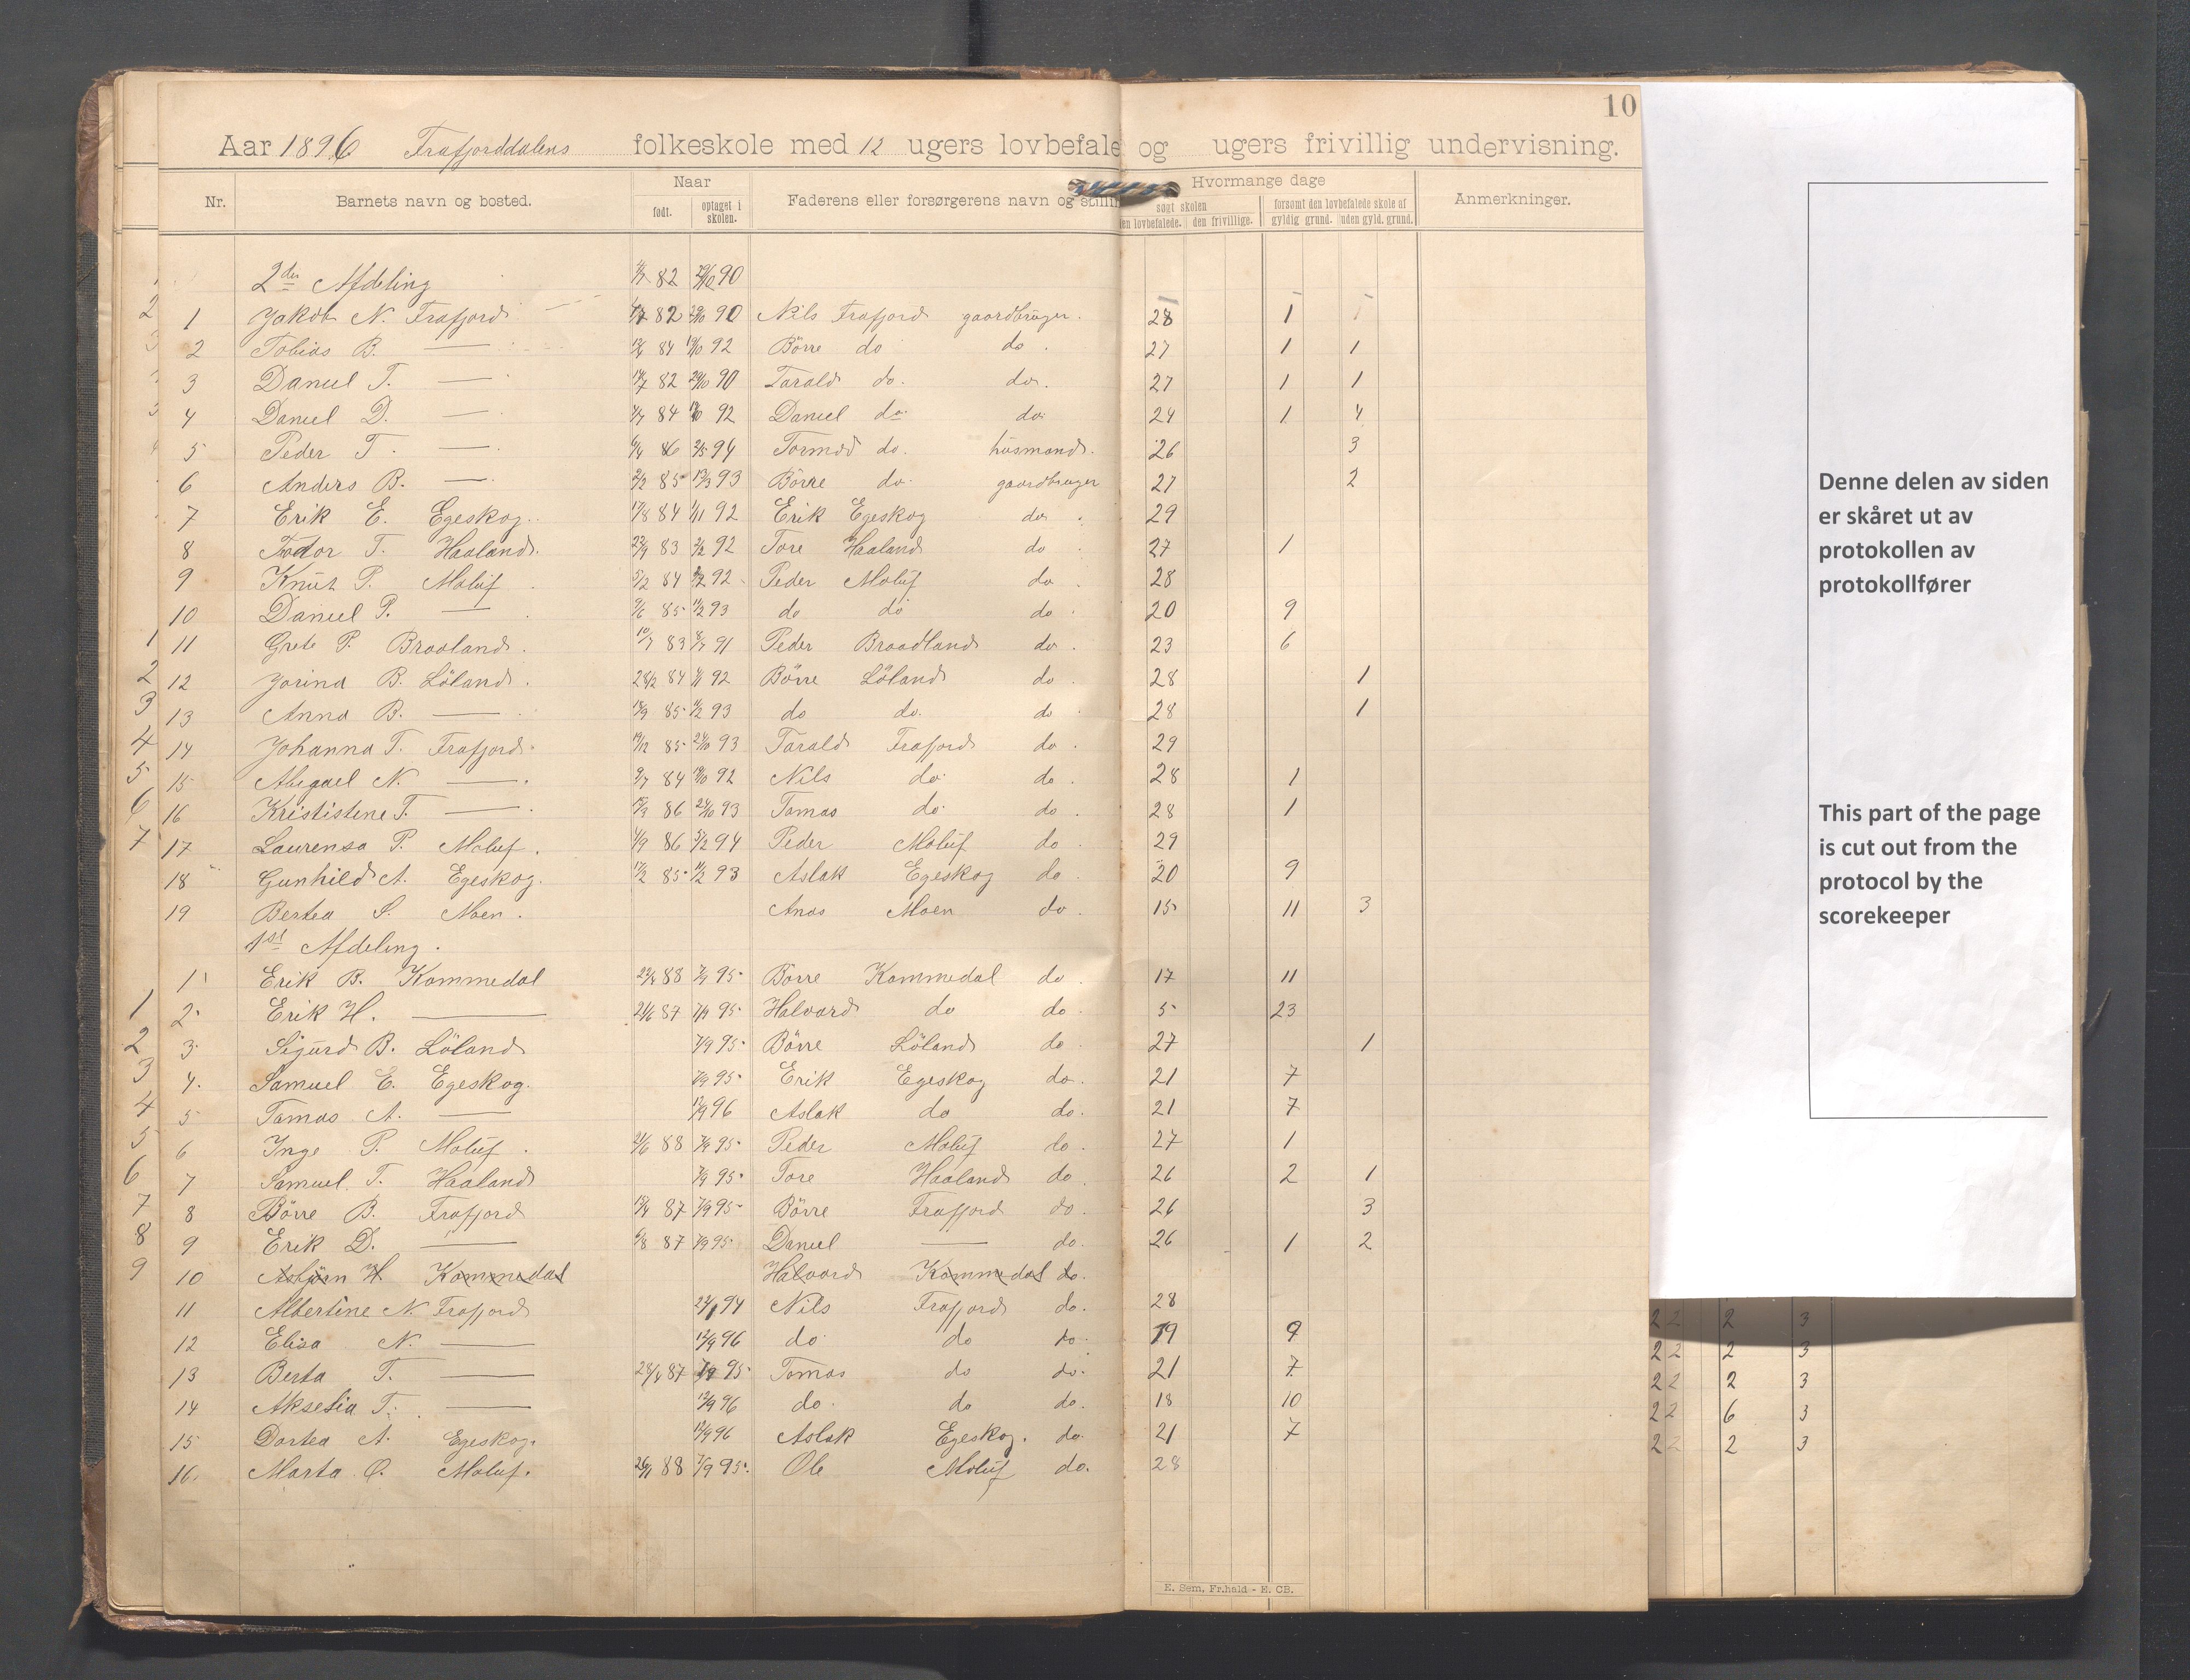 10
Aar 1896 Frafjorddalens folkeskole med 12 ugers lovbefale og ugers frivillig undervisning.
Nr. Barnets navn og bosted. Naar født. optaget i skolen. Faderens eller forsørgerens navn og stilling Hvormange dage søgt skolen den lovbefalede. den frivillige. forsømt den lovbefalede skole af gyldig grund. uden gyld. grund. Anmerkninger.
2den Afdeling 82 29/10 90
1 Jakob N. Frafjord 82 29/10 90 Nils Frafjord gaardbruger. 28 1 1
2 Tobias B. — 84 92 Börre do do. 27 1 1
3 Daniel T. — 82 29/10 90 Tarald do. do. 27 1 1
4 Daniel D. — 84 92 Daniel do do 24 1 4
5 Peder T. — 86 94 Tormod do. husmand. 26 3
6 Anders B. — 2/2 85 13/3 93 Börre do. gaardbruger 27 2
7 Erik E. Egeskog. 17/8 84 1/11 92 Erik Egeskog do 29
8 Todor T. Haaland. 83 2/2 92 Tore Haaland do 27 1
9 Knut P. Maluf 5/2 84 92 Peder Maluf do 28
10 Daniel P. — 9/6 85 11/2 93 do do do 20 9
11 Grete P. Braaland. 10/7 83 8/7 91 Peder Braadland do. 23 6
12 Jorina B. Löland. 28/2 84 92 Börre Löland do. 28 1
13 Anna B. — 18/9 85 11/2 93 do do. do 28 1
14 Johanna T. Frafjord. 19/12 85 24/10 93 Tarald Frafjord do. 29
15 Abigael N. — 9/7 84 92 Nils do do 28 1
16 Krististene T. — 86 24/10 93 Tomas do do 28 1
17 Laurensa P. Maluf. 4/9 86 5/2 94 Peder Maluf do 29
18 Gunhild A. Egeskog. 17/2 85 11/2 93 Aslak Egeskog do. 20 9
19 Bertea S. Moen. Moen do. 15 11 3
1st Afdeling.
1 Erik B. Kommedal 88 7/9 95 Börre Kommedal do. 17 11
2 Erik H. — 21/6 87 7/9 95 Halvard do do. 5 23
3 Sigurd B. Löland 7/9 95 Börre Löland do. 27 1
4. Samuel E. Egeskog. 7/9 95 Erik Egeskog do. 21 7
5 Tomas A. — 12/9 96 Aslak do do. 21 7
6 Inge P. Maluf. 21/6 88 7/9 95 Peder Maluf do. 27 1
7 Samuel T. Haaland 7/9 95 Tore Haaland do. 26 2 1
8 Börre B. Frafjord 87 7/9 95 Börre Frafjord do. 26 3
9 Erik D. — 6/8 87 7/9 95 Daniel — do. 26 1 2
10 Asbjörn H Kommedal Halvard Kommedal do.
11 Albertine N. Frafjord 94 Nils Frafjord do. 28
12 Elisa N. — 12/9 96 do do do. 19 9
13 Berta T. — 87 7/9 95 Tomas do do. 21 7
14 Akselia T. — 12/9 96 do do do. 18 10
15 Dortea A. Egeskog. 12/9 96 Aslak Egeskog. do. 21 7
16. Marta O. Maluf. 26/1 88 7/9 95. Ole Maluf do. 28
E. Sem, Fr.hald - E. CB.
2
1
2
3
4
5
6
7
1
2
3
4
5
6
7
8
9
Denne delen av siden
er skåret ut av
protokollen av
protokollfører
This part of the page
is cut out from the
protocol by the
scorekeeper
22 2 3
22 2 3
22 2 3
22 6 3
22 2 3